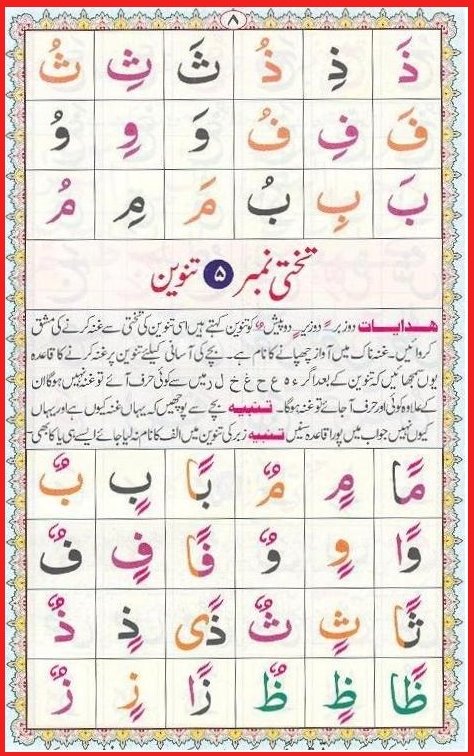 ۸
ذَ ذِ ذُ ثَ ثِ ثُ
فَ فِ فُ وَ وِ وُ
بَ بِ بُ مَ مِ مُ
تختی نمبر ۵ تنوین
ھدایات دو زبر ً دو زیر ٍ دو پیش ٌ کو تنوین کہتے ہیں اسی تنوین کی تختی سے غنہ کرنے کی مشق
کروائیں۔ غنہ ناک میں آواز چھپانے کا نام ہے۔ بچے کی آسانی کیلئے تنوین پر غنہ کرنے کا قاعدہ
یوں سمجھائیں کہ تنوین کے بعد اگر ء ہ ع ح غ خ ل ر میں سے کوئی حرف آئے تو غنہ نہیں ہوگا ان
کے علاوہ کوئی اور حرف آ جائے تو غنہ ہوگا۔ تنبیہ بچے سے پوچھیں کہ یہاں غنہ کیوں ہے اور یہاں
کیوں نہیں جواب میں پورا قاعدہ سنیں تنبیہ زبر کی تنوین میں الف کا نام نہ لیا جائے ایسے ہی یا کا بھی۔
مًا مٍ مٌ بًا بٍ بٌ
وًا وٍ وٌ فًا فٍ فٌ
ثًا ثٍ ثٌ ذًی ذٍ ذٌ
ظًا ظٍ ظٌ زًا زٍ زٌ